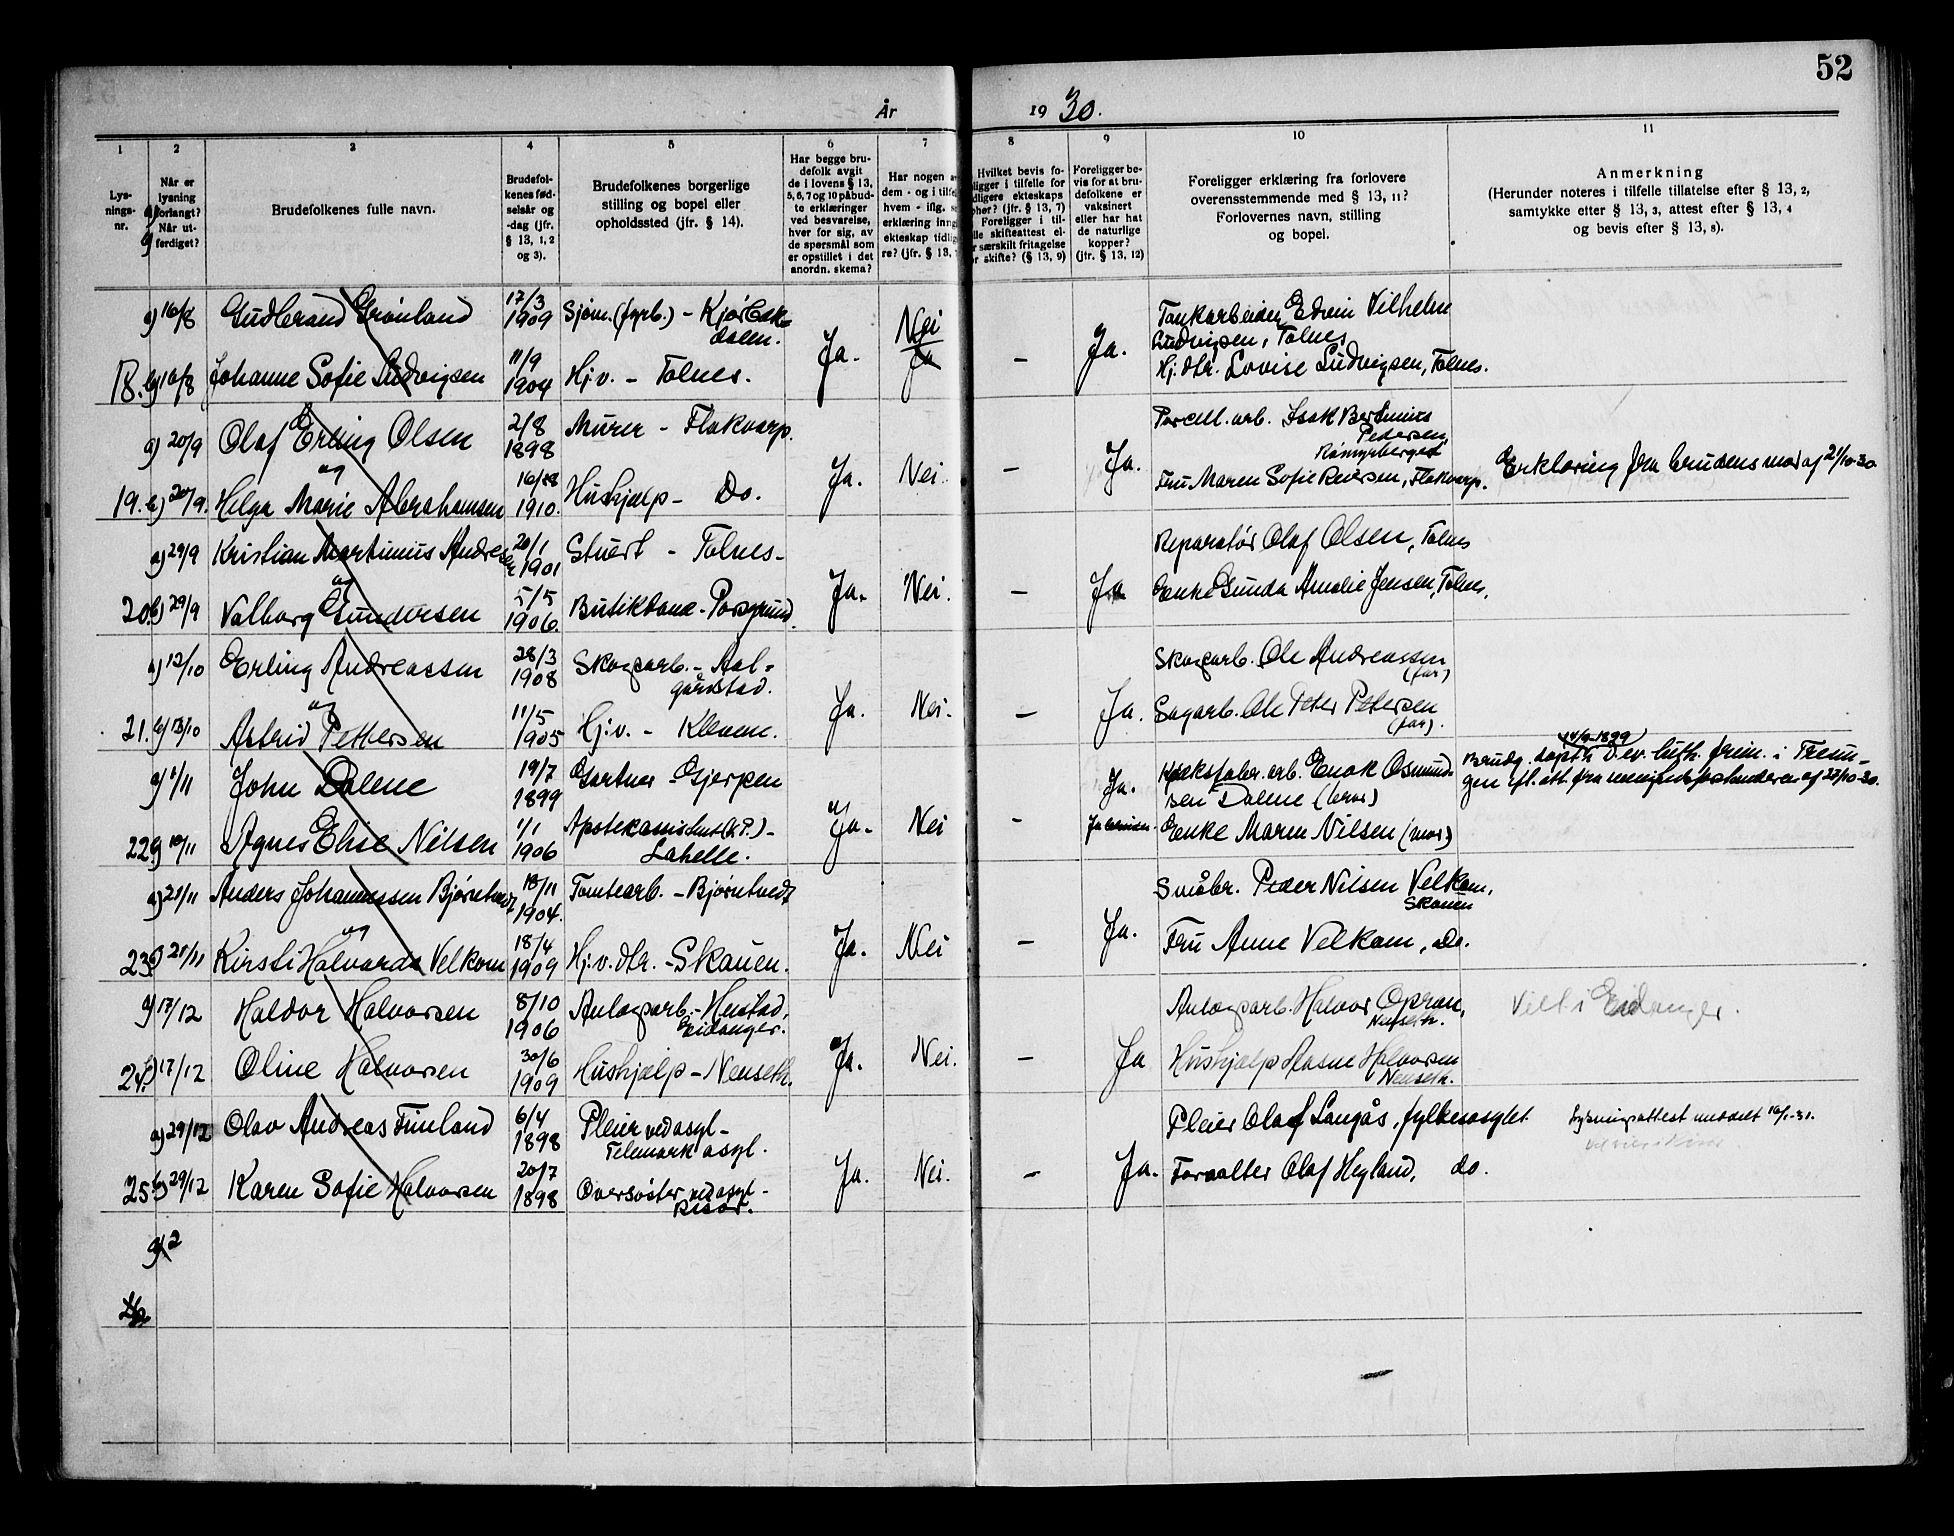 52
År
19 30.
1 2 3 4 5 6 7 8 9 10 11
Lys-
nings-
nr.
Når er
lysning
forlangt?
Når ut-
ferdiget?
Brudefolkenes fulle navn.
Brudefol-
kenes fød-
selsår og
-dag (jfr.
§ 13, 1, 2
og 3).
Brudefolkenes borgerlige
stilling og bopel eller
opholdssted (jfr. § 14).
Har begge bru-
defolk avgit
de i lovens § 13,
5, 6, 7 og 10 påbud-
te erklæringer
ved besvarelse,
hver for sig, av
de spørsmål som
er opstillet i det
anordn. skema?
Har nogen a
dem - og i tilfe
hvem - iflg. s
erklæring inng
ekteskap tidlig
re? (jfr. § 13,
Hvilket bevis fo-
ligger i tilfelle for
dligere ekteskaps
phør? (jfr. § 13, 7)
Foreligger i til-
lle skifteattest el-
r særskilt fritagelse
or skifte? (§ 13, 9)
Foreligger be-
vis for at bru-
defolkene er
vaksinert
eller har hat
de naturlige
kopper?
(jfr. § 13, 12)
Foreligger erklæring fra forlovere
overensstemmende med § 13, 11?
Forlovernes navn, stilling
og bopel.
Anmerkning
(Herunder noteres i tilfelle tillatelse efter § 13, 2,
samtykke efter § 13, 3, attest efter § 13, 4
og bevis efter § 13, 8).
a) 16/8 Gudbrand Grønland 17/3 1909 Sjøm. (fyrb.) - Kjørbæk-
dalen.
18. b) 16/8 Johanne Sofie Ludvigsen 11/9 1904 Hj.v. - Tolnes. Ja. Nei Ja - Ja.
Tankarbeider Edvin Vilhelm
Ludvigsen, Tolnes
Hj. dtr. Lovise Ludvigsen, Tolnes.
a) 20/9 Olaf Erling Olsen 2/8 1898 Murer - Flakvarp.
og
19. b) 20/9. Helga Marie Abrahamsen 1910. Hushjælp - Do. Ja. Nei. - Ja.
Porcell. arb. Isak Bertinius
Pedersen
Rømyrberget
Fru Maren Sofie Reiersen, Flakvarp.
Erklæring fra brudens mor af 2/10-30.
a) 29/9 Kristian Martinius Andresen 20/1 1901 Stuert - Tolnes -
og
20. b) 29/9 Valborg Gundersen 5/5 1906. Butikdame - Porsgrund. Ja. Nei. - Ja
Reparatør Olaf Olsen, Tolnes
Enke Gunda Amalie Jensen, Tolnes.
a) 12/10 Erling Andreassen 28/3 1908 Skogsarb. - Aal-
gårdstad.
og
21. b) 13/10 Astrid Pettersen 11/5 1905 Hj.v. - Kleven. Ja. Nei. - Ja.
Skogsarb. Ole Andreassen
(far)
Sagarb. Ole Peter Petersen
(far).
a) 1/11 John Dalene 19/7 1899 Gartner Gjerpen
22. b) 10/11 Agnes Elise Nilsen 1/1 1906 Lahelle. Ja. Nei - Ja.
arb. Enok Osmund-
sen Dalene (bror)
Enke Maren Nilsen (mor)
14/9-1899
Brudg. døpt i D ev. luth. frim. i
af 22/10-30.
a) 21/11 Anders Johannessen Bjørntvedt 18/11 1904. Tomtearb. - Bjørntvedt
og
23. b) 21/11 Kirsti Halvarda Velkom 18/4 1909 Hj.v. dtr. - Skauen. Ja. Nei - Ja.
Småbr. Peder Nilsen Velkam,
Skauen
Fru Anne Velkam, do.
a) 17/12 Haldor Halvorsen 8/10 1906 Anlægsarb. - Herstad,
Eidanger.
24. b) 17/12 Oline Halvorsen 30/6 1909 Hushjælp - Nenseth. Ja. Nei. - Ja
Anlægsarb. Halvor Opran,
Nenseth.
Hushjælp Aasne Halvorsen
Nenseth.
Viet i Eidanger.
a) 29/12 Olav Andreas Finland 6/4 1898 Pleier ved asyl -
Telemark asyl.
25. b) 29/12 Karen Sofie Halvorsen 20/7 1898 Oversøster ved asyl -
Risør. Ja. Nei. - Ja.
Pleier Olaf Langås, fylkesasylet
Forvalter Olaf Hegland, do.
Lysningsattest utstedt 16/1-31.